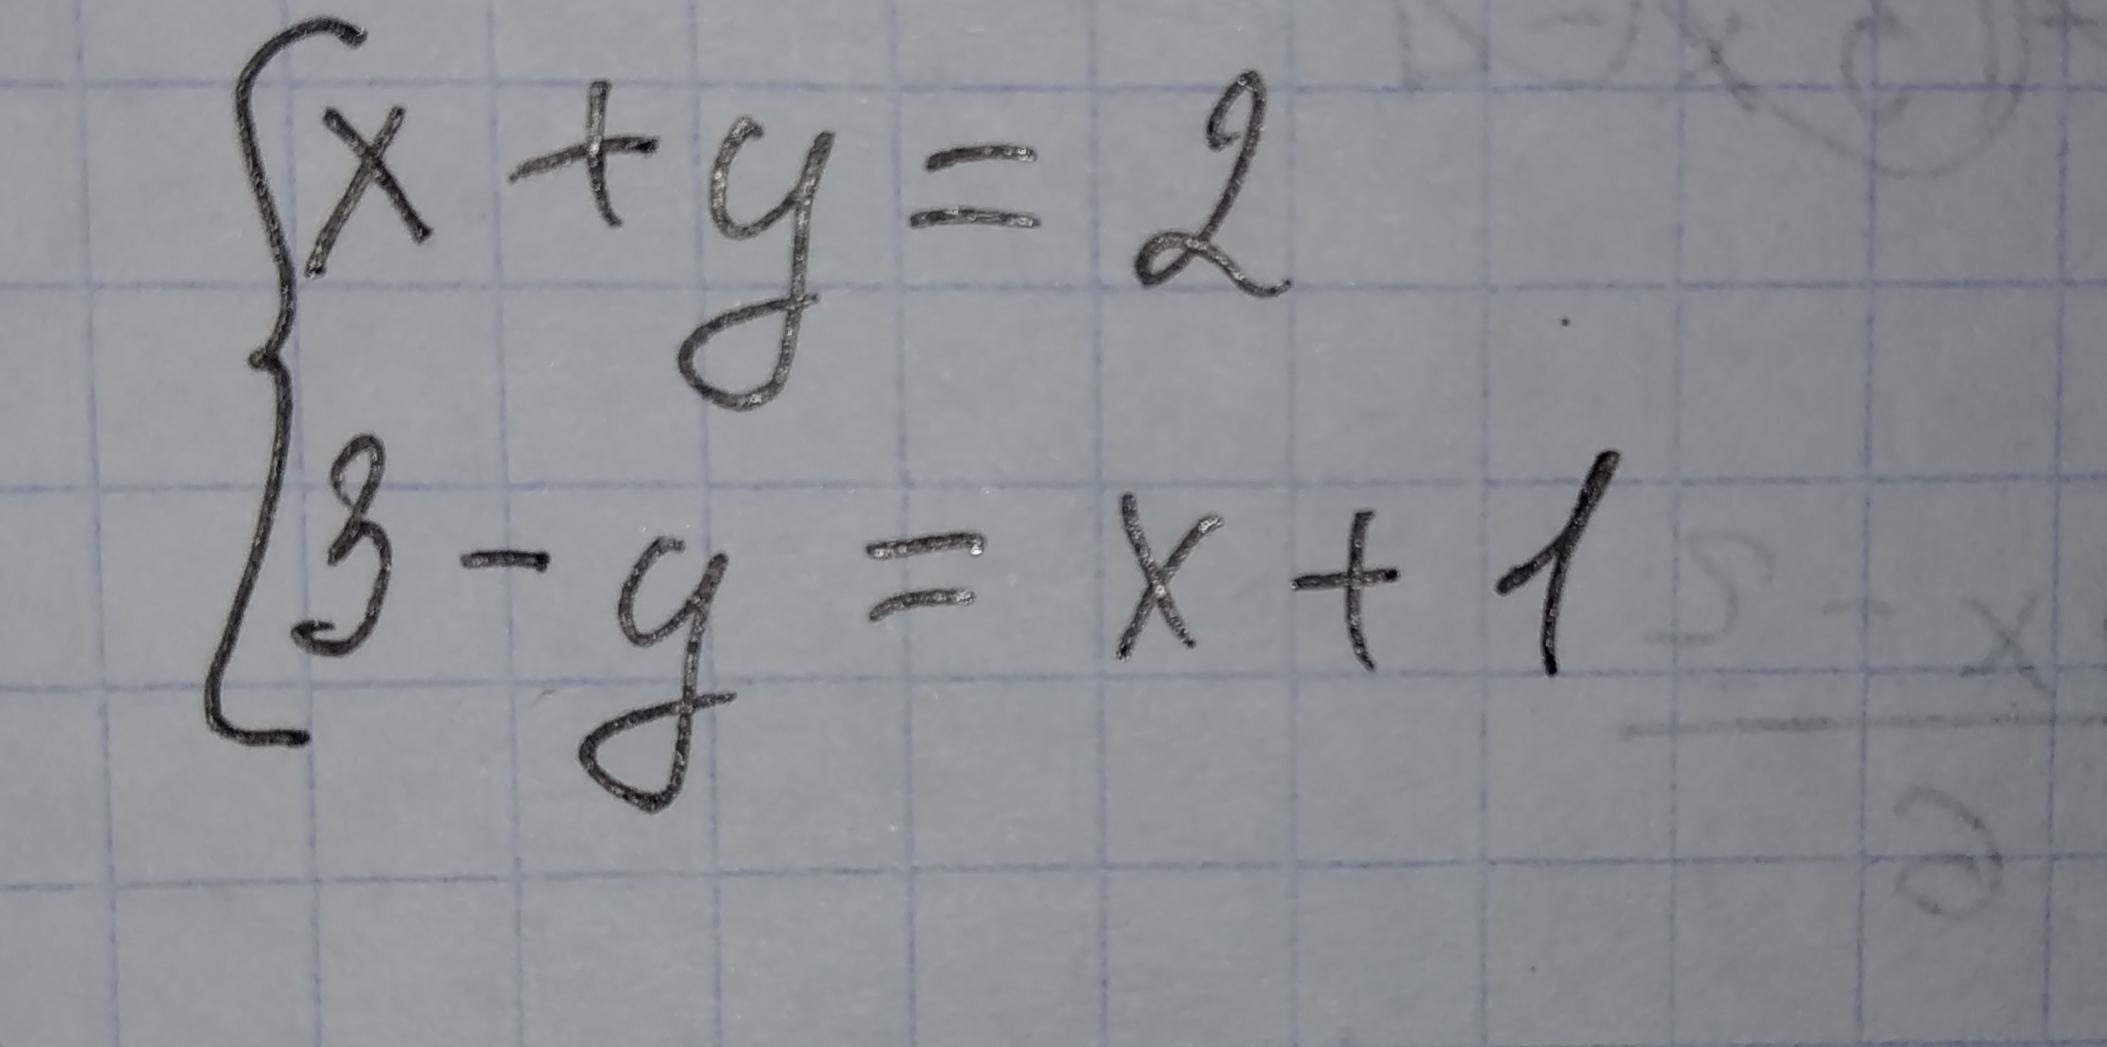 x + y = 2
3 - y = x + 1